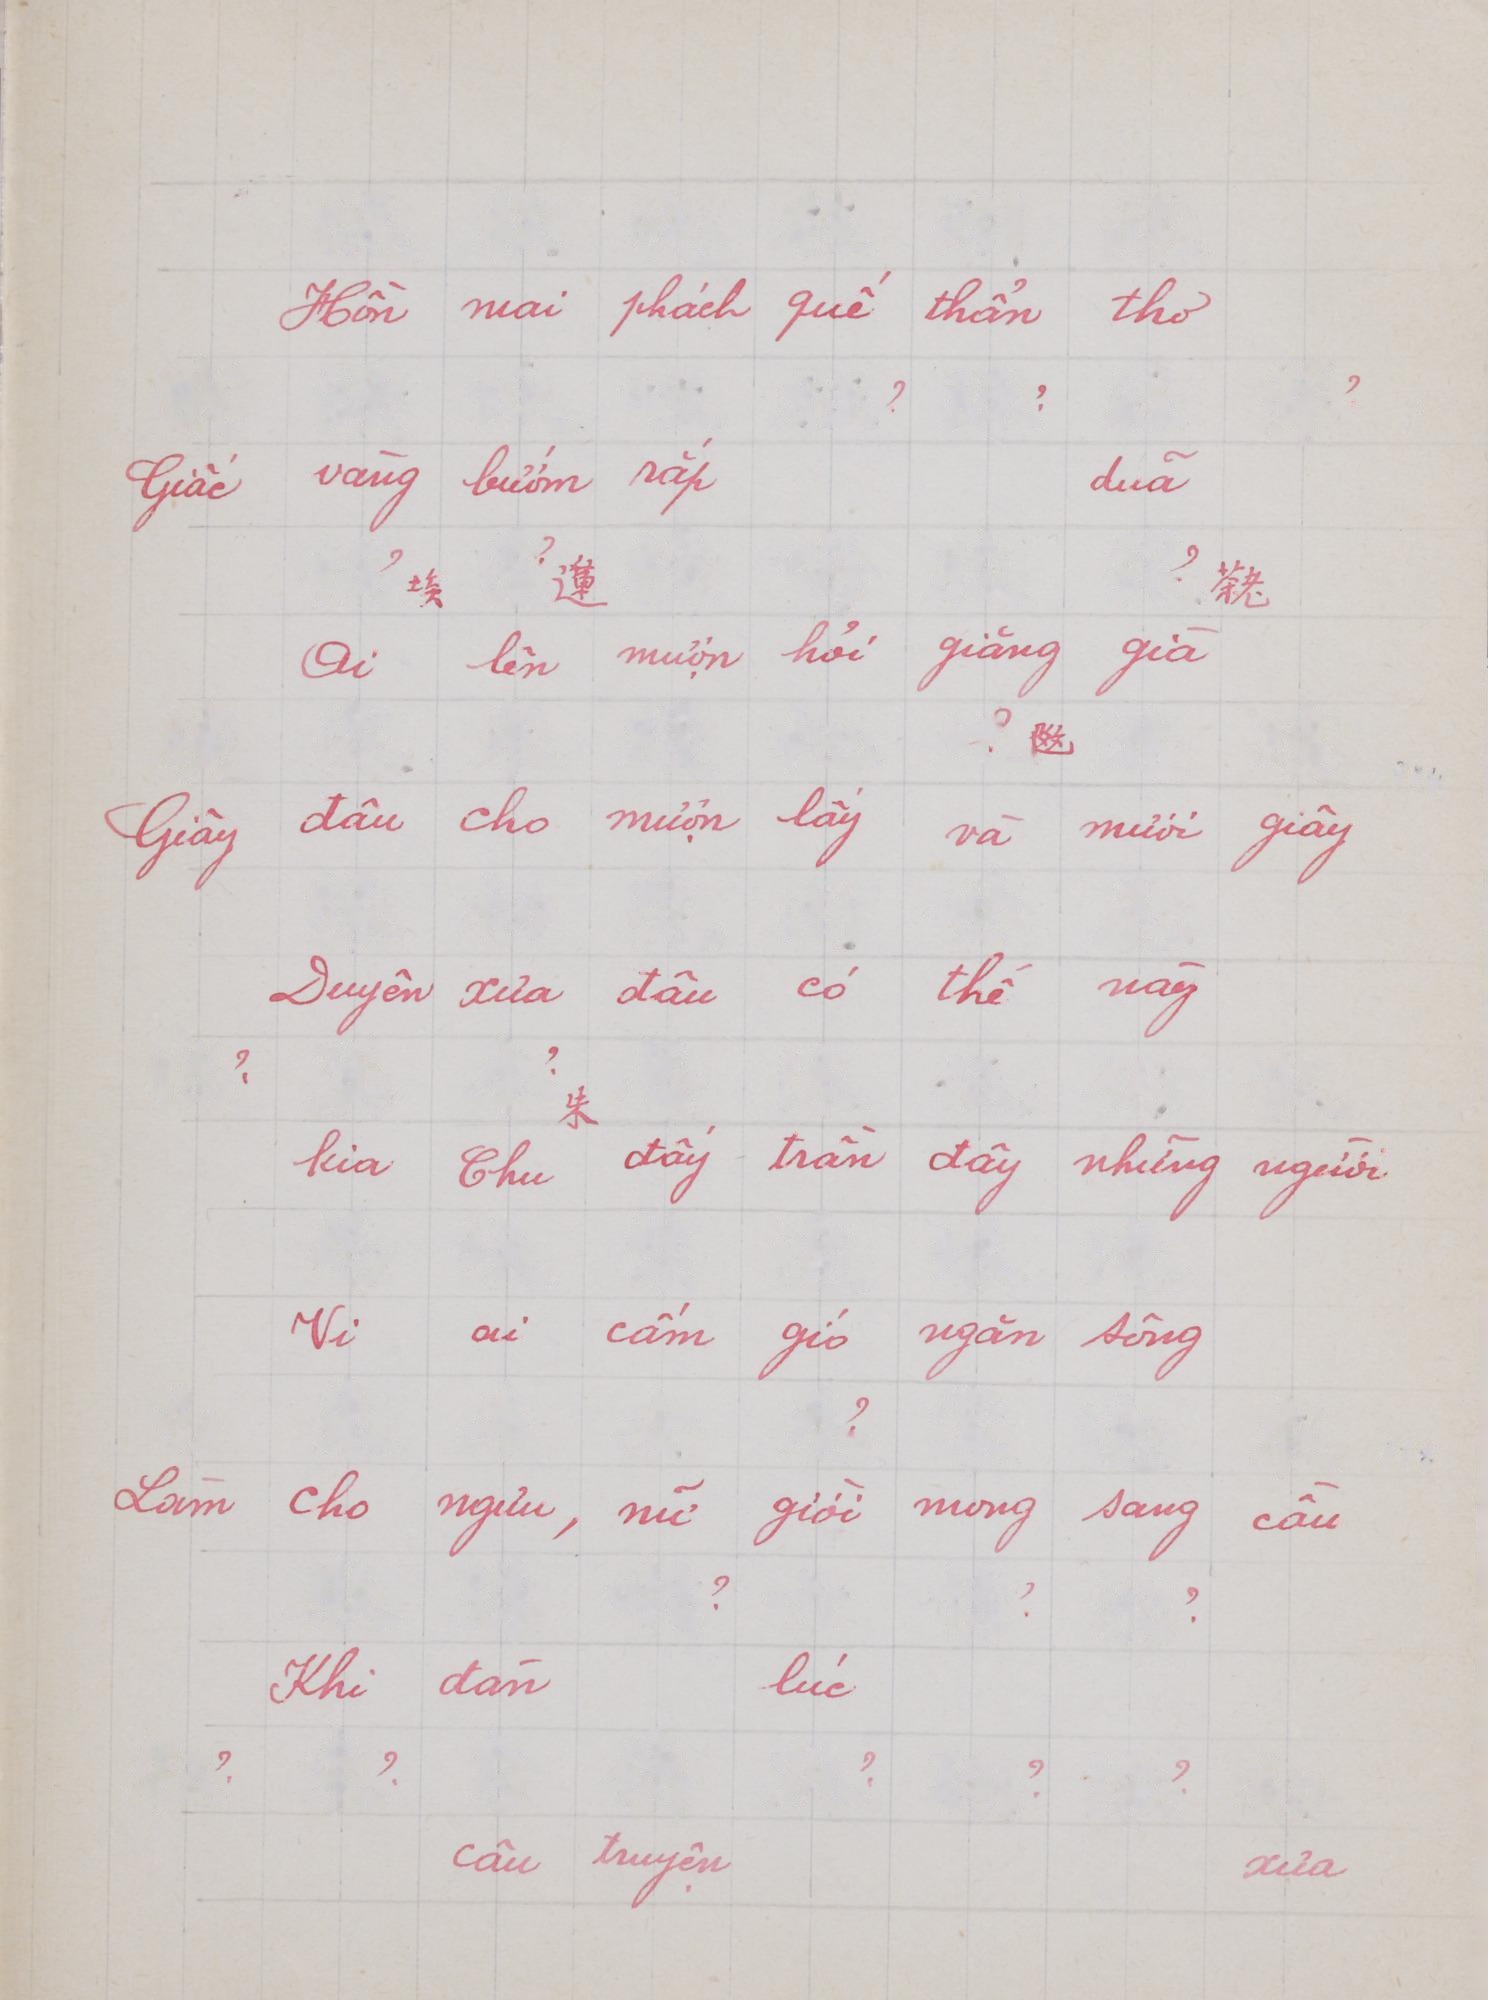 Hồn mai phách quế thẩn thơ
? ? ?
Giấc vàng bướm rắp duã
? 埃 ? 蓮 ?
Ai lên mượn hỏi giăng già
?
Giây đâu cho mượn lấy và mươi giây
Duyên xưa đâu có thế này
? ? 朱
kia Chu đấy trần đây những người
Vì ai cấm gió ngăn sông
?
Làm cho ngưu, nữ giời mong sang cầu
? ? ?
Khi đàn lúc
? ? ? ? ?
câu truyện xưa